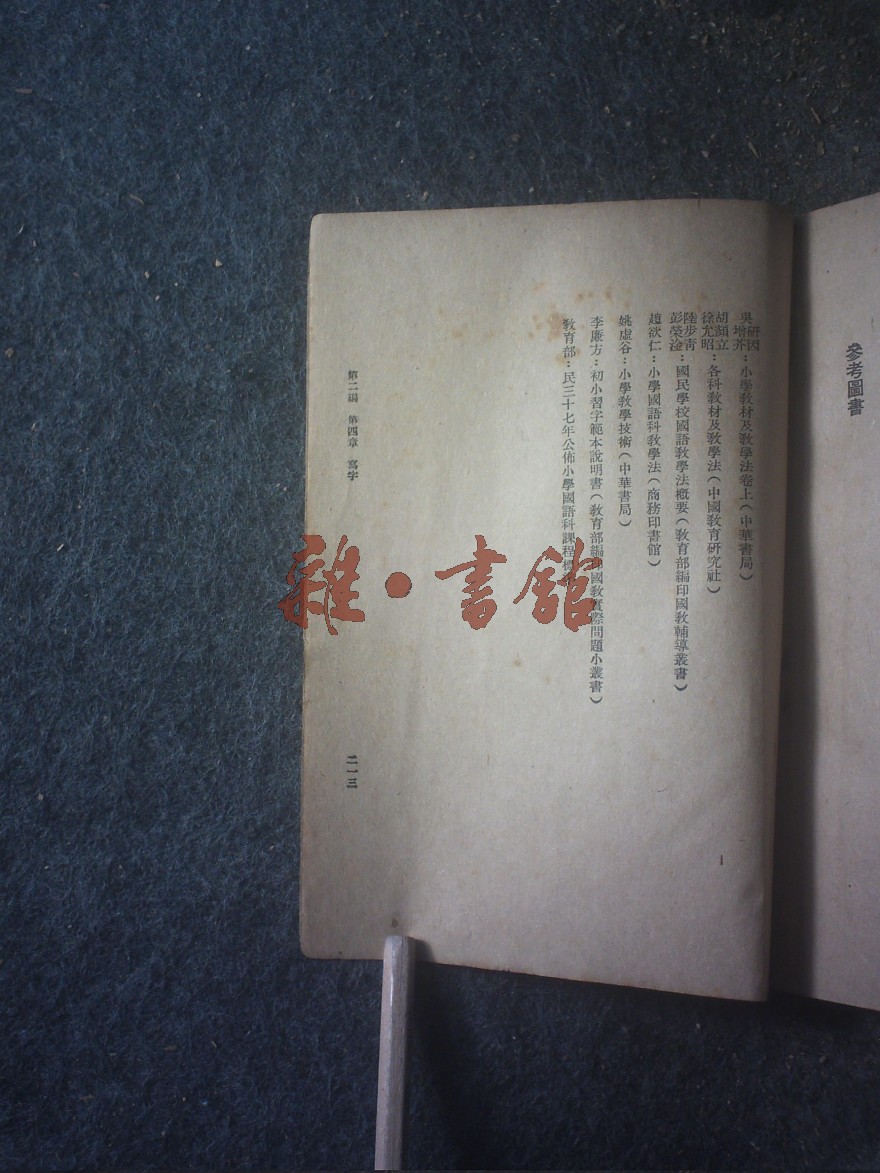 參考圖書
吳研因
吳增芥：小學教材及教學法卷上（中華書局）
胡顏立
徐允昭：各科教材及教學法（中國教育研究社）
陸步青
彭榮淦：國民學校國語教學法概要（教育部編印國教輔導叢書）
趙欲仁：小學國語科教學法（商務印書館）
姚虛谷：小學教學技術（中華書局）
李廉方：初小習字範本說明書（教育部編印國教實際問題小叢書）
教育部：民三十七年公佈小學國語科課程標
第二編　第四章　寫字
二一三
雜·書館